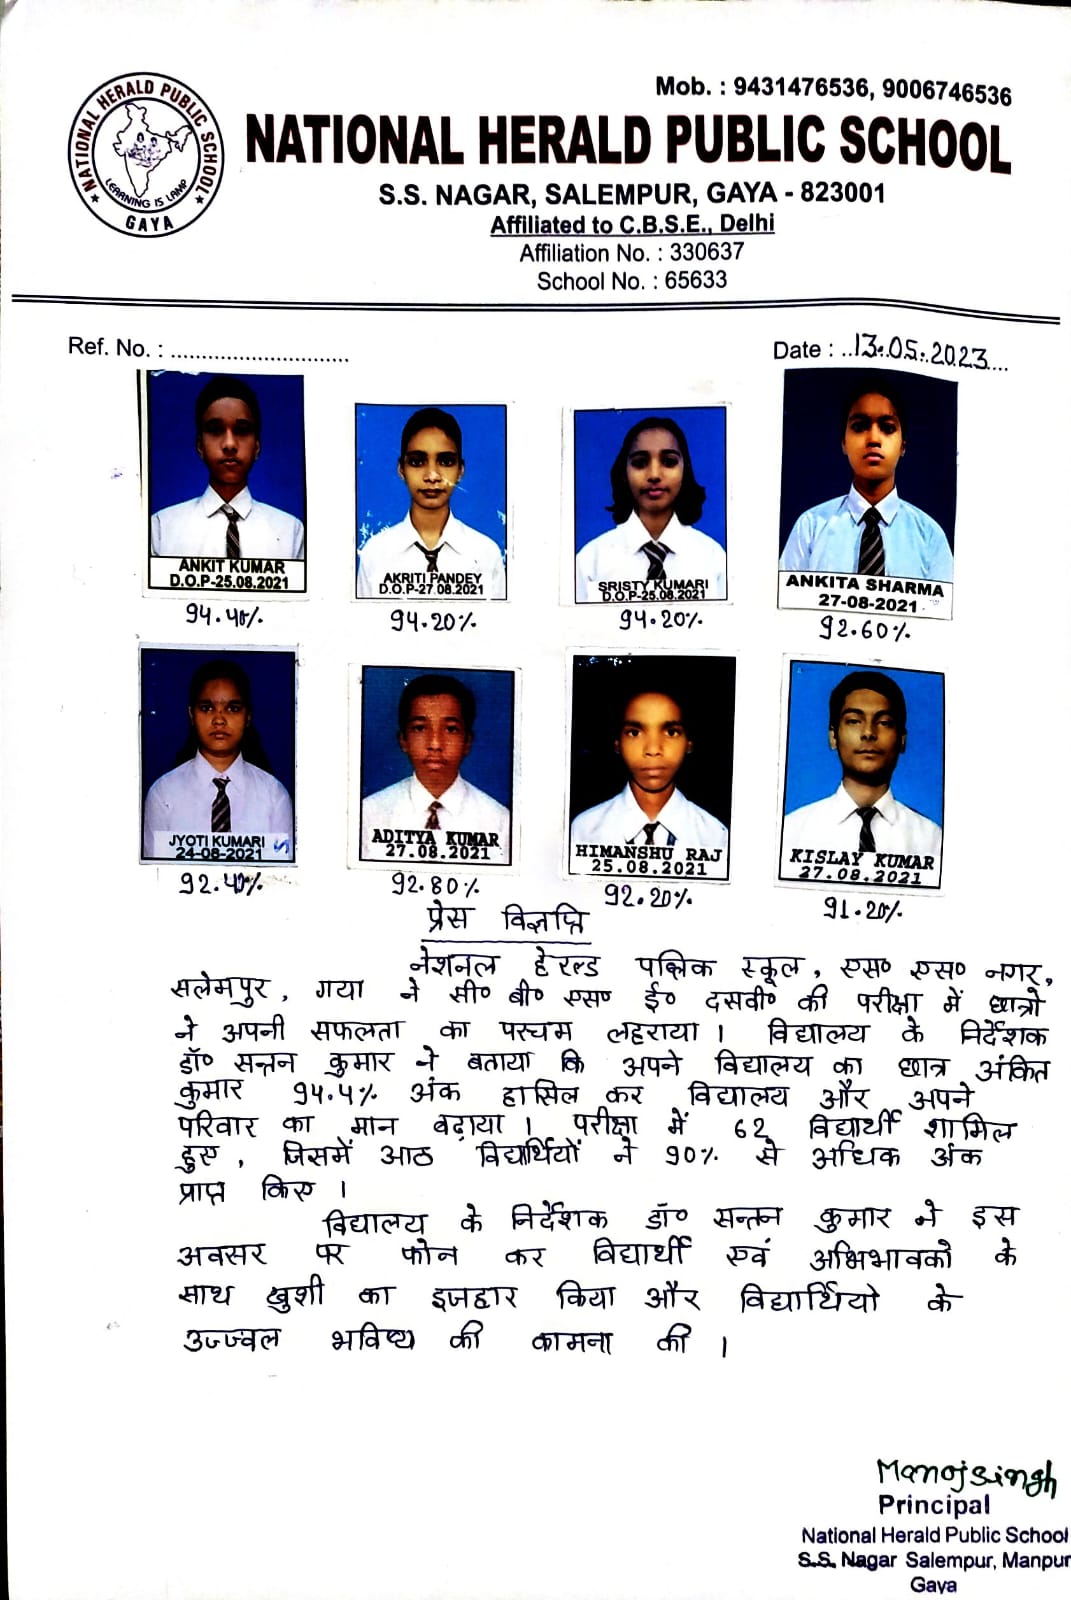 Mob. : 9431476536, 9006746536
NATIONAL HERALD PUBLIC SCHOOL
GAYA
LEARNING IS LAMP
NATIONAL HERALD PUBLIC SCHOOL
S.S. NAGAR, SALEMPUR, GAYA - 823001
Affiliated to C.B.S.E., Delhi
Affiliation No. : 330637
School No. : 65633
Ref. No. : ............................
Date : ..13.05.2023....
ANKIT KUMAR
D.O.P-25.08.2021
94.40%
AKRITI PANDEY
D.O.P-27.08.2021
94.20%
SRISTY KUMARI
D.O.P-25.08.2021
94.20%
ANKITA SHARMA
27-08-2021
92.60%
JYOTI KUMARI
24-08-2021
92.40%
ADITYA KUMAR
27.08.2021
92.80%
HIMANSHU RAJ
25.08.2021
92.20%
KISLAY KUMAR
27.08.2021
91.20%
प्रेस विज्ञप्ति
नेशनल हेरल्ड पब्लिक स्कूल, एस० एस० नगर,
सलेमपुर, गया ने सी० बी० एस० ई० दसवी० की परीक्षा में छात्रो
ने अपनी सफलता का परचम लहराया । विद्यालय के निर्देशक
डॉ० सन्तन कुमार ने बताया कि अपने विद्यालय का छात्र अंकित
कुमार 94.4% अंक हासिल कर विद्यालय और अपने
परिवार का मान बढ़ाया । परीक्षा में 62 विद्यार्थी शामिल
हुए, जिसमें आठ विद्यार्थियों ने 90% से अधिक अंक
प्राप्त किए ।
विद्यालय के निर्देशक डॉ० सन्तन कुमार ने इस
अवसर पर फोन कर विद्यार्थी एवं अभिभावको के
साथ खुशी का इजहार किया और विद्यार्थियो के
उज्ज्वल भविष्य की कामना की ।
Manoj Singh
Principal
National Herald Public School
S.S. Nagar Salempur, Manpur
Gaya